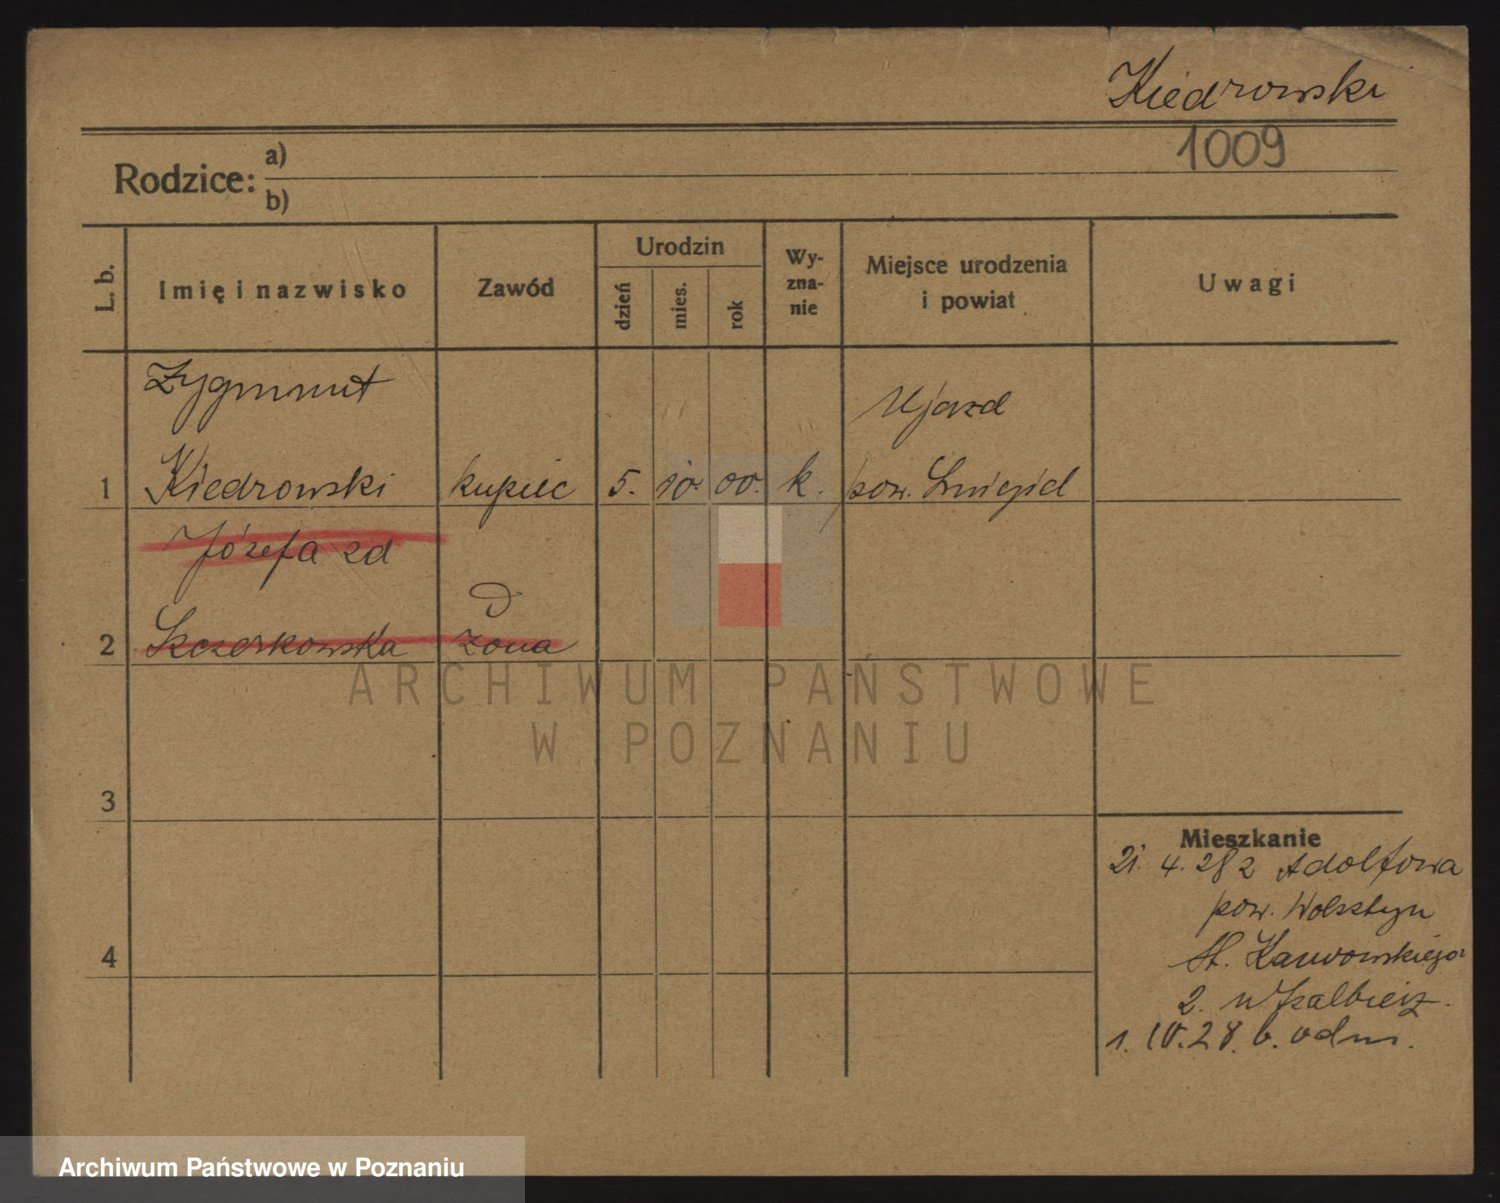 Kiedrowski
1009
Rodzice: a)
b)
L. b.
Imię i nazwisko
Zawód
Urodzin
dzień
mies.
rok
Wy-
zna-
nie
Miejsce urodzenia
i powiat
Uwagi
Zygmunt
Ujazd
1 Kiedrowski kupiec 5. 10. 00. k. pow. Śmigiel
Józefa zd
2 Szczerkowska żona
3
4
Mieszkanie
21. 4. 28 z Adolfowa
pow. Wolsztyn
St.
2.
1. 10. 28. b. odm.
ARCHIWUM PAŃSTWOWE
W POZNANIU
Archiwum Państwowe w Poznaniu